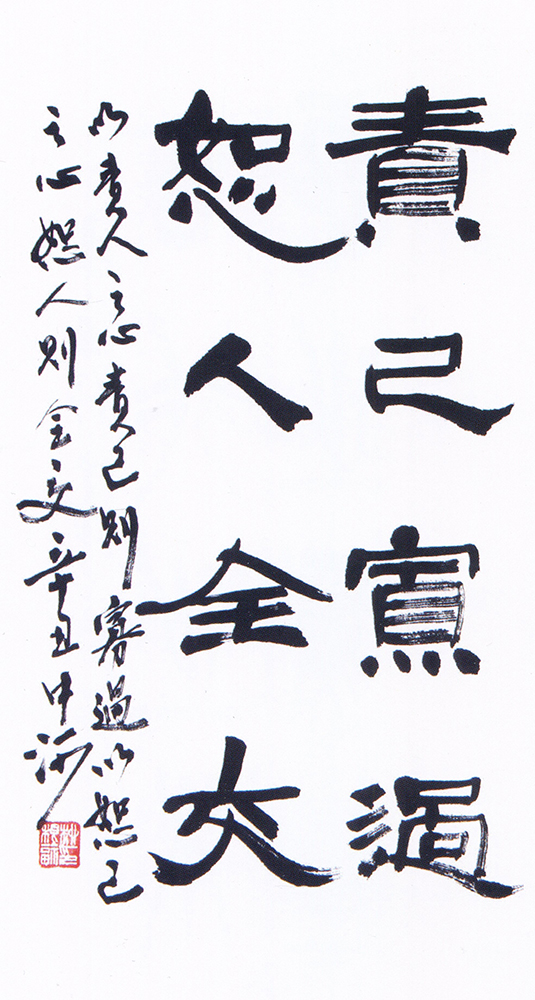 責己寡過
恕人全交
以責人之心責己則寡過以恕己
之心恕人則全交辛丑中沙